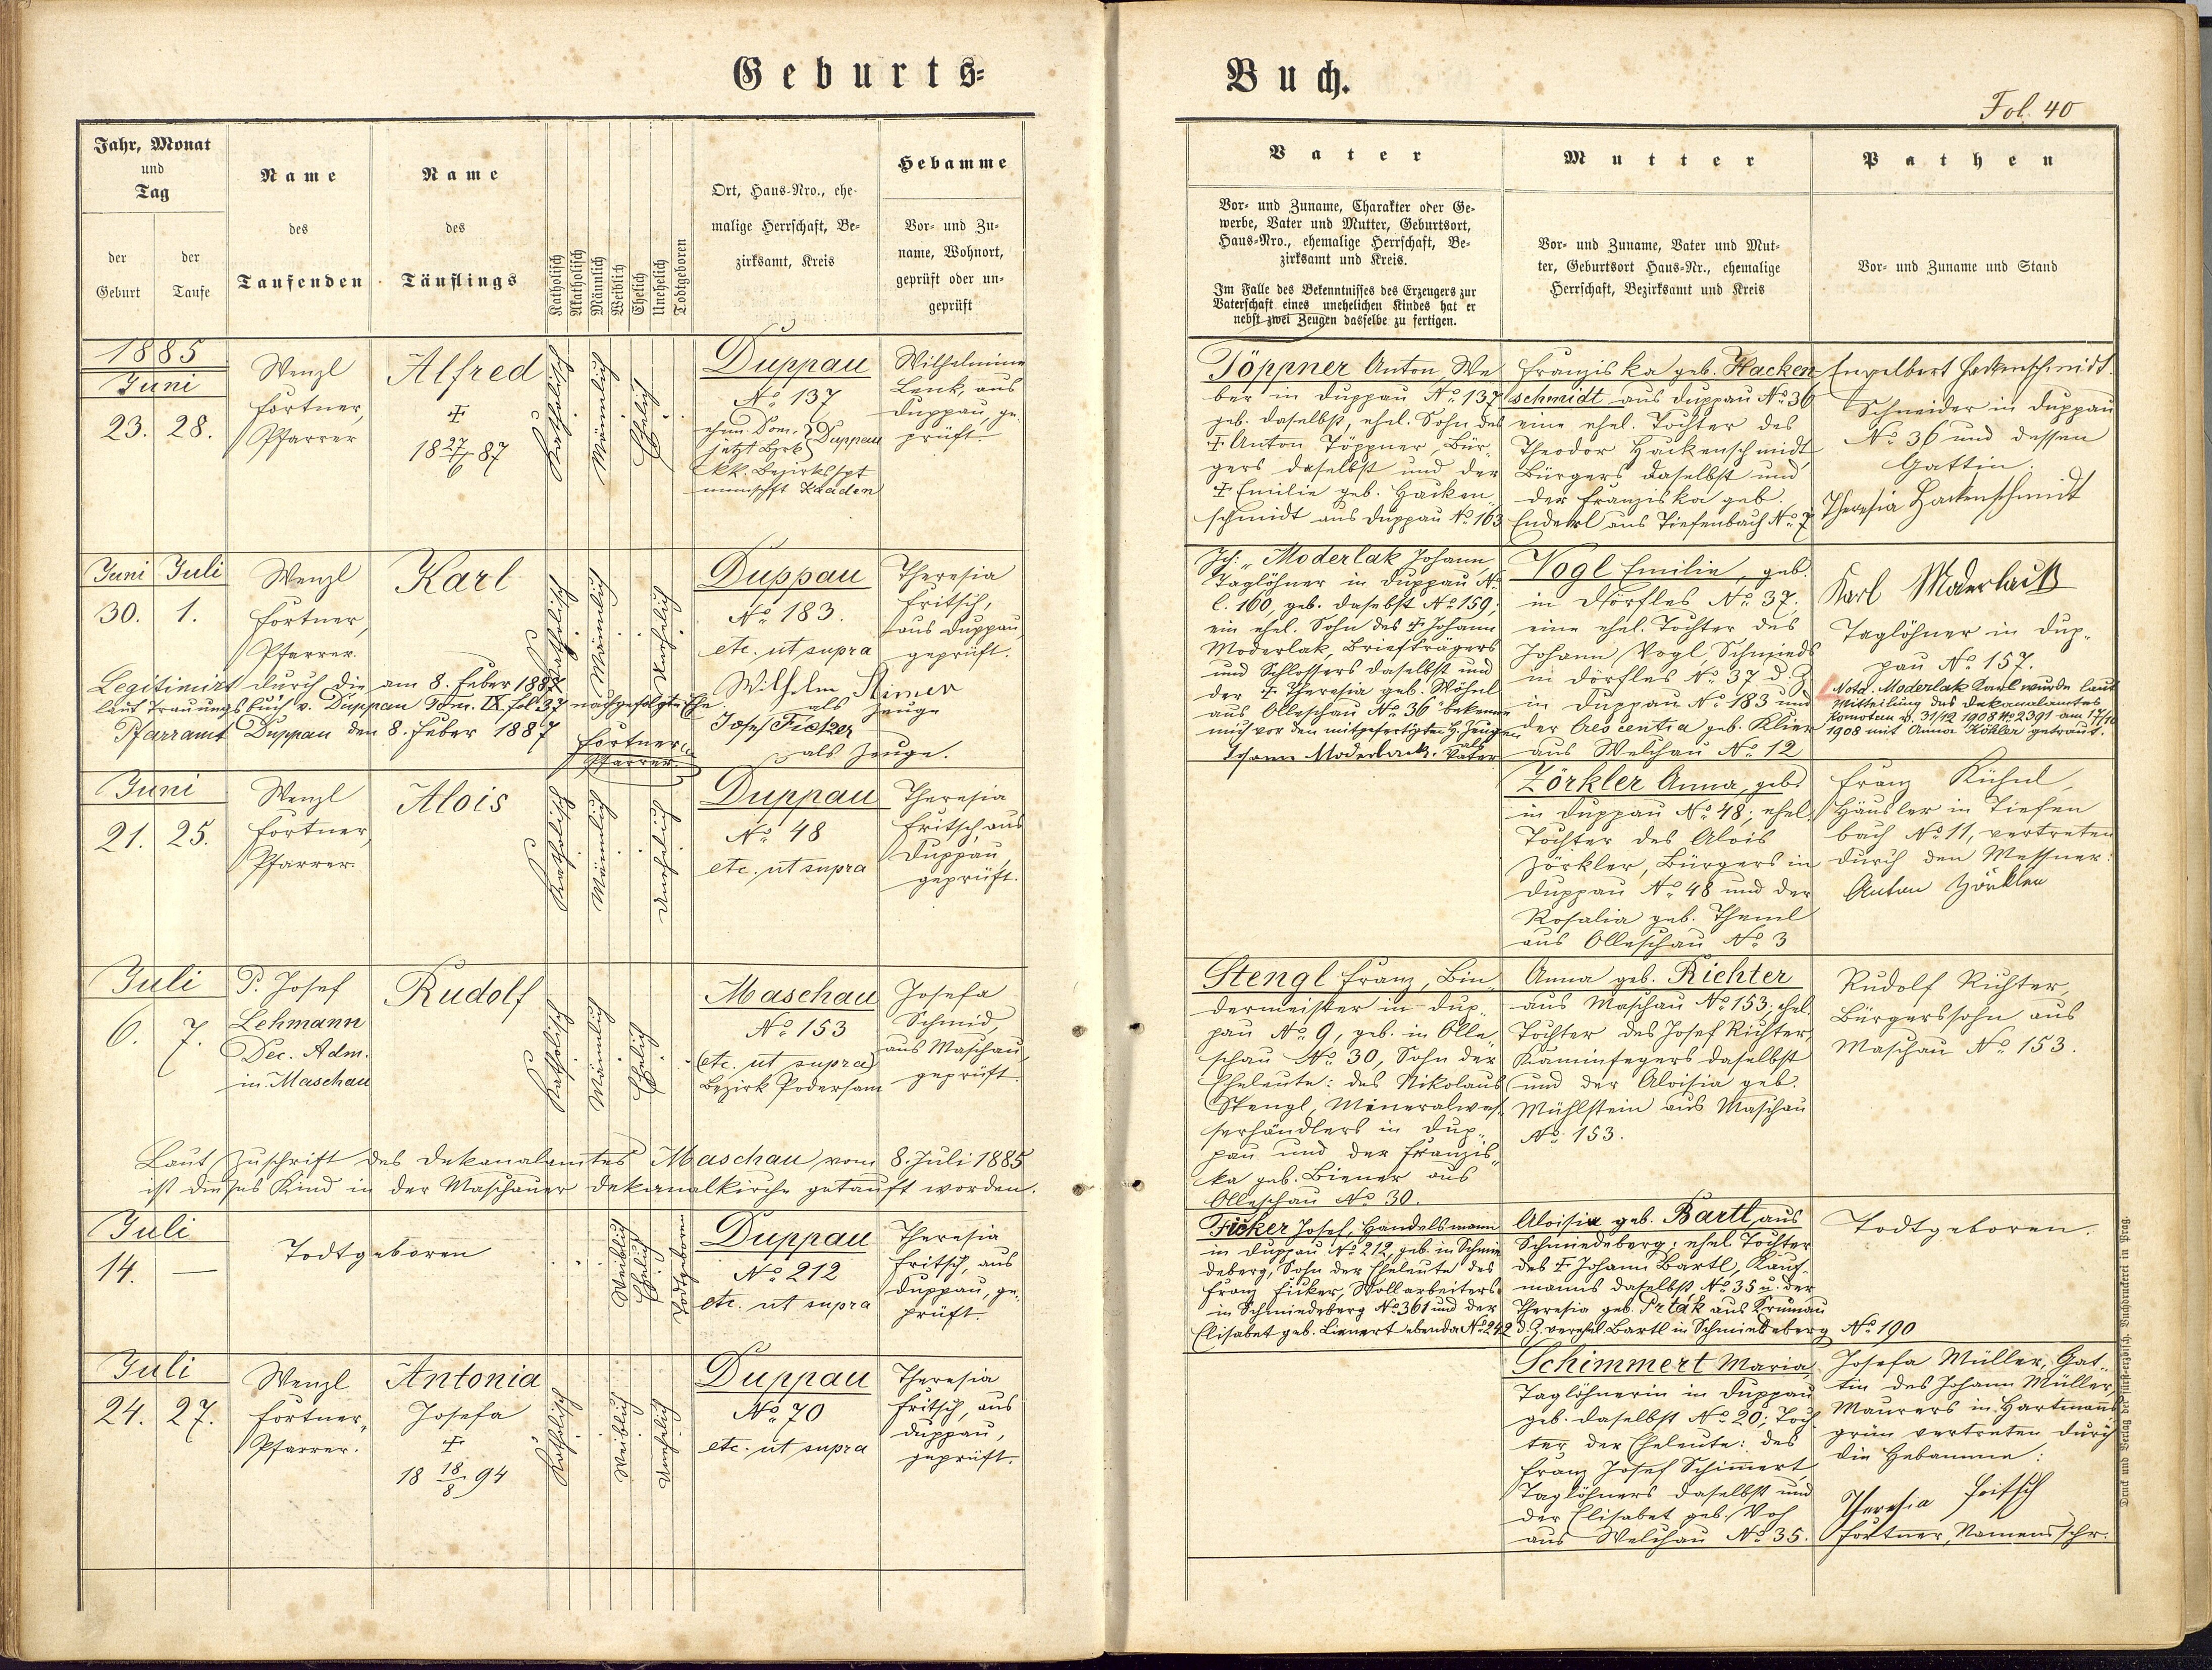 Geburts-
Buch.
Fol. 40
Jahr, Monat
und
Tag
der
Geburt
der
Taufe
Name
des
Taufenden
Name
des
Täuflings
Katholisch
Akatholisch
Männlich
Weiblich
Ehelich
Unehelich
Todtgeboren
Ort, Haus-Nro., ehe-
malige Herrschaft, Be-
zirksamt, Kreis
Hebamme
Vor- und Zu-
name, Wohnort,
geprüft oder un-
geprüft
Vater
Vor- und Zuname, Charakter oder Ge-
werbe, Vater und Mutter, Geburtsort,
Haus-Nro., ehemalige Herrschaft, Be-
zirksamt und Kreis.
Im Falle des Bekenntnisses des Erzeugers zur
Vaterschaft eines unehelichen Kindes hat er
nebst zwei Zeugen dasselbe zu fertigen.
Mutter
Vor- und Zuname, Vater und Mut-
ter, Geburtsort Haus-Nr., ehemalige
Herrschaft, Bezirksamt und Kreis
Pathen
Vor- und Zuname und Stand
1885
Juni
23. 28.
Wenzl
Fortner,
Pfarrer
Alfred
†
18 27/6 87
Katholisch
Männlich
Ehelich
Duppau
No 137
ehem. Dom.
jetzt Bzrk Duppau
kk. Bezirkshpt
mannschft Kaaden
Wilhelmine
Lenk, aus
Duppau, ge-
prüft.
Töppner Anton We
ber in Duppau No 137
geb. daselbst, ehel. Sohn des
† Anton Töppner, Bür-
gers daselbst und der
† Emilie geb. Hacken
schmidt aus Duppau No 163
Franziska geb. Hacken
schmidt aus Duppau No 36
eine ehel. Tochter des
Theodor Hackenschmidt
Bürgers daselbst und
der Franziska geb.
Enderl aus Tiefenbach No 7
Engelbert Hackenschmidt.
Schneider in Duppau
No 36 und dessen
Gattin.
Theresia Hackenschmidt
Juni Juli
30. 1.
Wenzl
Fortner,
Pfarrer.
Karl
Katholisch
Männlich
Unehelich
Duppau
No 183.
etc. ut supra
Theresia
Fritsch,
aus Duppau
geprüft.
Legitimirt durch die am 8. Feber 1887
laut Trauungsbuch v. Duppau Tom. IX fol 37 nachgefolgte Ehe
Pfarramt Duppau den 8. Feber 1887
Fortner
Pfarrer.
Wilhelm
als Zeuge
Josef Ficker
als Zeuge.
Ich: „Moderlak Johann,
Taglöhner in Duppau N
C. 160, geb. daselbst No 159;
ein ehel. Sohn des † Johann
Moderlak, Briefträgers
und Schlossers daselbst und
der † Theresia geb. Wöhnl
aus Olleschau No 36" bekenne
mich vor den mitgefertigten H. Zeugen
als
Johann Moderlack. Vater
Vogl Emilie, geb.
in Dörfles No 37,
eine ehel. Tochter des
Johann Vogl, Schmieds
in Dörfles No 37 d. Z.
in Duppau No 183 und
der Crescentia geb. Klier
aus Welchau No 12
Karl Moderlack
Taglöhner in Dup-
pau No 157.
Nota. Moderlak Karl wurde laut
Mitteilung des Dekanalamtes
Komotau v. 31/12 1908 No 2391 am 17/10
1908 mit Anna Köhler getraut.
Juni
21. 25.
Wenzl
Fortner,
Pfarrer.
Alois
Katholisch
Männlich
Unehelich
Duppau
No 48
etc. ut supra
Theresia
Fritsch, aus
Duppau
geprüft.
Zörkler Anna, geb.
in Duppau No 48; ehel.
Tochter des Alois
Zörkler, Bürgers in
Duppau No 48 und der
Rosalia geb. Theml
aus Olleschau No 3
Franz Kühnl,
Häusler in Tiefen
bach No 11, vertreten
durch den Messner:
Anton Zörkler
Juli
6. 7.
P. Josef
Lehmann
Dec. Adm.
in Maschau
Rudolf
Katholisch
Männlich
Ehelich
Maschau
No 153
(etc. ut supra)
Bezirk Podersam
Josefa
Schmid,
aus Maschau,
geprüft.
Laut Zuschrift des Dekanalamtes Maschau vom 8. Juli 1885
ist dieses Kind in der Maschauer Dekanalkirche getauft worden.
Stengl Franz, Bin-
dermeister in Dup-
pau No 9, geb. in Olle-
schau No 30, Sohn der
Eheleute: des Nikolaus
Stengl, Mineralwas-
serhändlers in Dup-
pau und der Franzis-
ka geb. Biener aus
Olleschau No 30.
Anna geb. Richter
aus Maschau No 153, ehel.
Tochter des Josef Richter,
Kaminfegers daselbst
und der Aloisia geb.
Mühlstein aus Maschau
No 153.
Rudolf Richter,
Bürgerssohn aus
Maschau No 153.
Juli
14. —
Todtgeboren
Weiblich
Ehelich
Todtgeboren
Duppau
No 212
etc. ut supra
Theresia
Fritsch, aus
Duppau, ge-
prüft.
Ficker Josef, Handelsmann
in Duppau No 212, geb. in Schmie
deberg, Sohn der Eheleute des
Franz Ficker, Wollarbeiters
in Schmiedeberg No 361 und der
Elisabet geb. Lienert ebenda No 242
Aloisia geb. Bartl, aus
Schmiedeberg; ehel. Tochter
des † Johann Bartl, Kauf-
manns daselbst No 35 u. der
Theresia geb. Prták aus Krumau
d. Z. verehel. Bartl in Schmiedeberg No 190
Todtgeboren.
Juli
24. 27.
Wenzl
Fortner,
Pfarrer.
Antonia
Josefa
†
18 18/8 94
Katholisch
Weiblich
Unehelich
Duppau
No 70
etc. ut supra
Theresia
Fritsch, aus
Duppau,
geprüft.
Schimmert Maria,
Taglöhnerin in Duppau
geb. daselbst No 20; Toch
ter der Eheleute: des
Franz Josef Schimmert,
Taglöhners daselbst und
der Elisabet geb.
aus Welchau No 35.
Josefa Müller, Gat-
tin des Johann Müller,
Maurers in Hartmanns
grün vertreten durch
die Hebamme:
Theresia Fritsch
Fortner, Namensschr.
Druck und Verlag der fürst-erzbisch. Buchdruckerei in Prag.